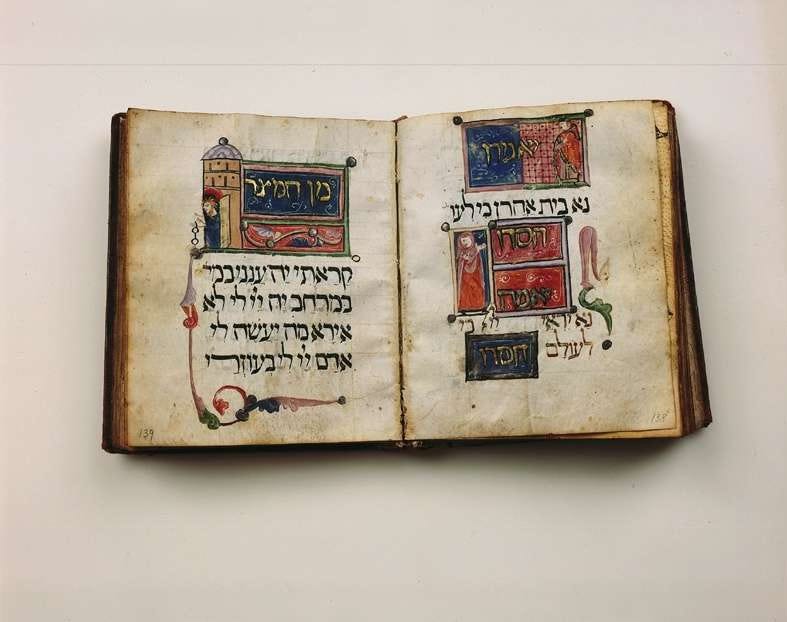 יאמרו
נא בית אהרן כי לעו
חסדו
יאמרו
נא יראי יי כי
לעולם חסדו
138
מן המיצר
קראתי יה ענני במר
במרחב יה יי לי לא
אירא מה יעשה לי
אדם יי לי בעוזרי
139